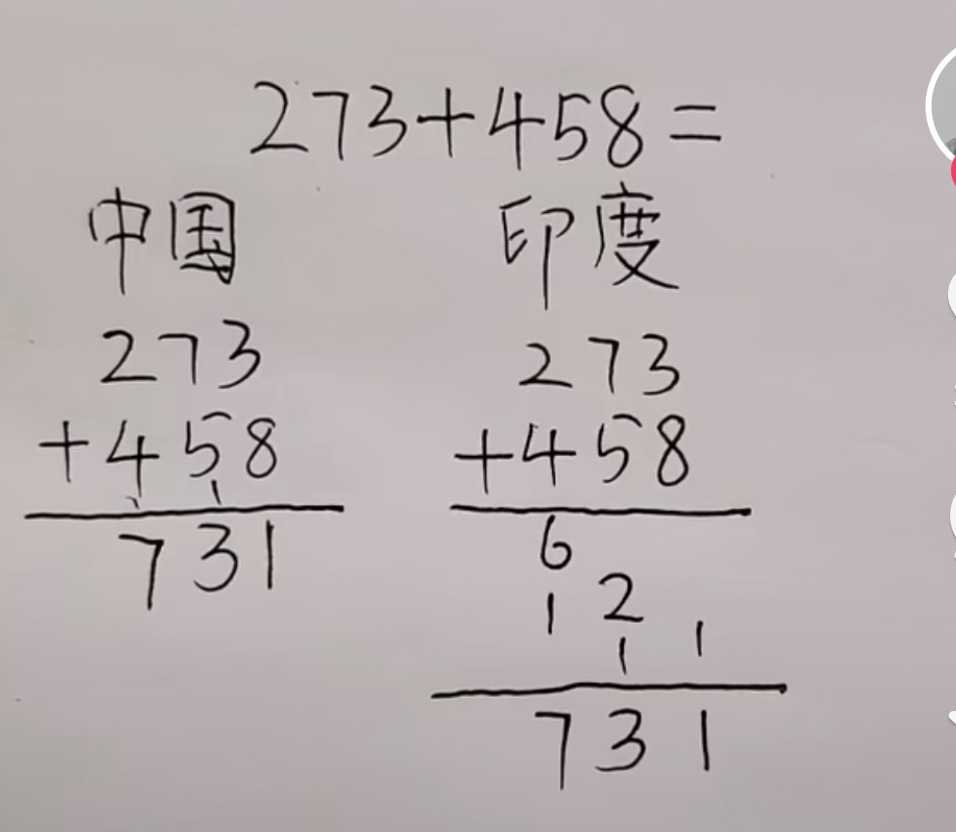 273+458=
中国
273
+458
1 1
731
印度
273
+458
6
1 2
1 1
731